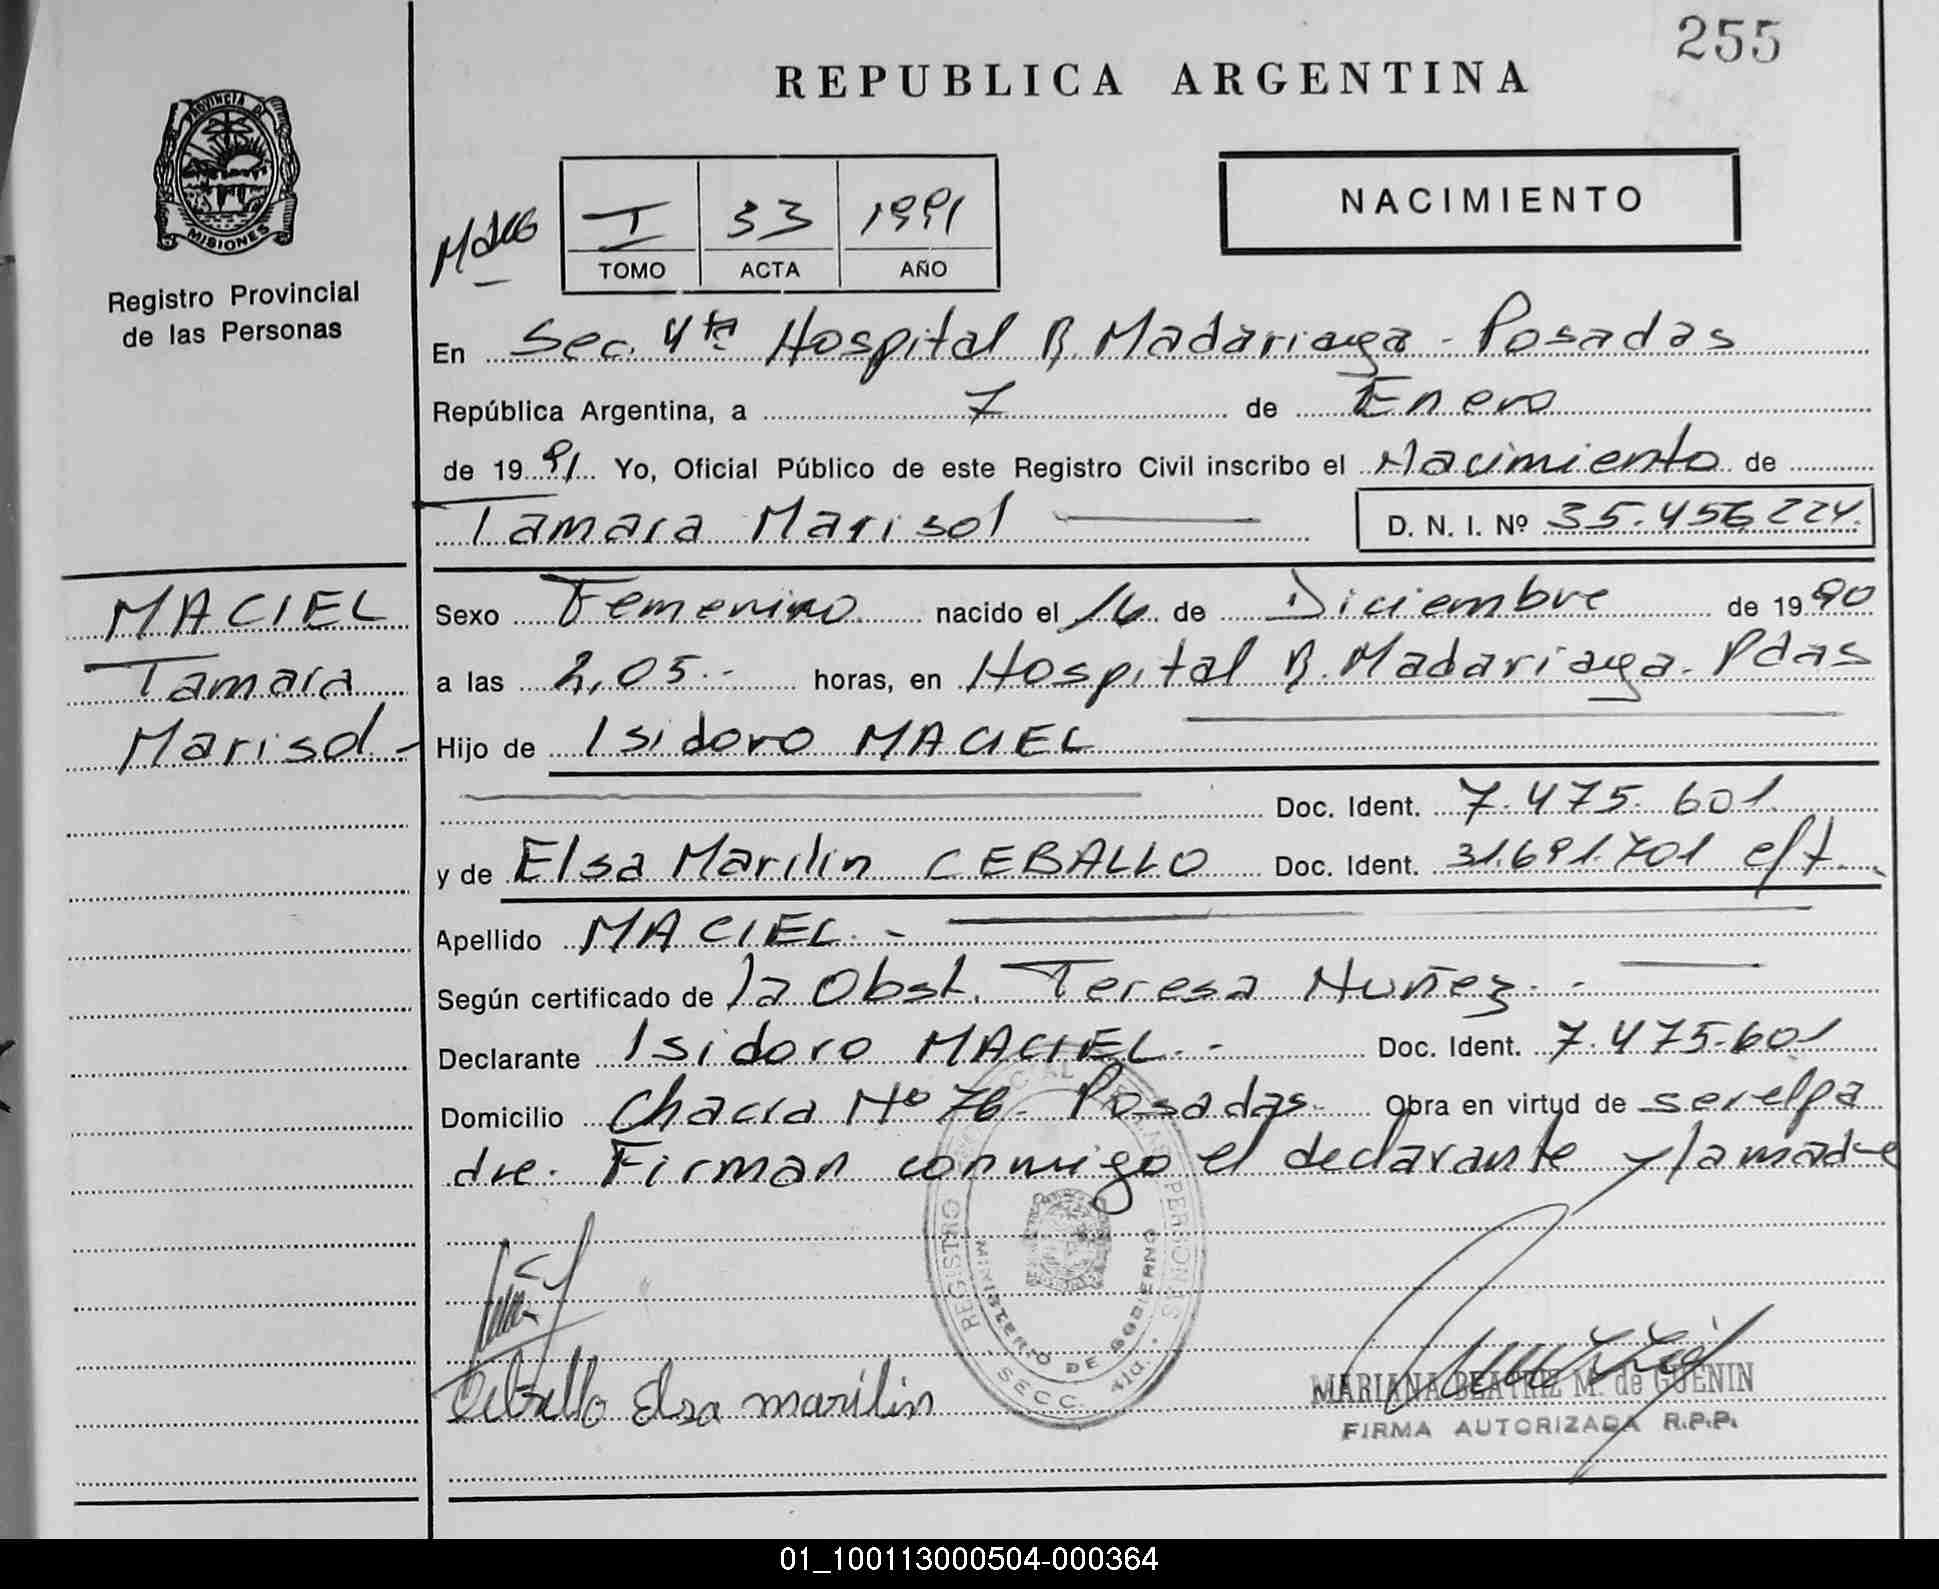 255
REPUBLICA ARGENTINA
PROVINCIA DE
MISIONES
Registro Provincial
de las Personas
NACIMIENTO
I 33 1991
TOMO ACTA AÑO
En Sec. 4ta Hospital R. Madariaga - Posadas
República Argentina, a 7 de Enero
de 1991 Yo, Oficial Público de este Registro Civil inscribo el Nacimiento de
Tamara Marisol D. N. I. Nº 35.456224.
MACIEL
Tamara
Marisol -
Sexo Femenino nacido el 16 de Diciembre de 1990
a las 2,05.- horas, en Hospital R. Madariaga. Pdas
Hijo de Isidoro MACIEL
Doc. Ident. 7.475.601
y de Elsa Marilin CEBALLO Doc. Ident. 31.691.701 e/t.
Apellido MACIEL. -
Según certificado de la Obst. Teresa Nuñez. -
Declarante Isidoro MACIEL. - Doc. Ident. 7.475.601
Domicilio Chacra Nº 76 - Posadas. Obra en virtud de ser el pa
dre. Firman conmigo el declarante y la madre
REGISTRO PERSONAS
MINISTERIO DE GOBIERNO
SECC. 4ta.
Ceballo Elsa marilin
MARIANA BEATRIZ M. de GUENIN
FIRMA AUTORIZADA R.P.P.
01_100113000504-000364